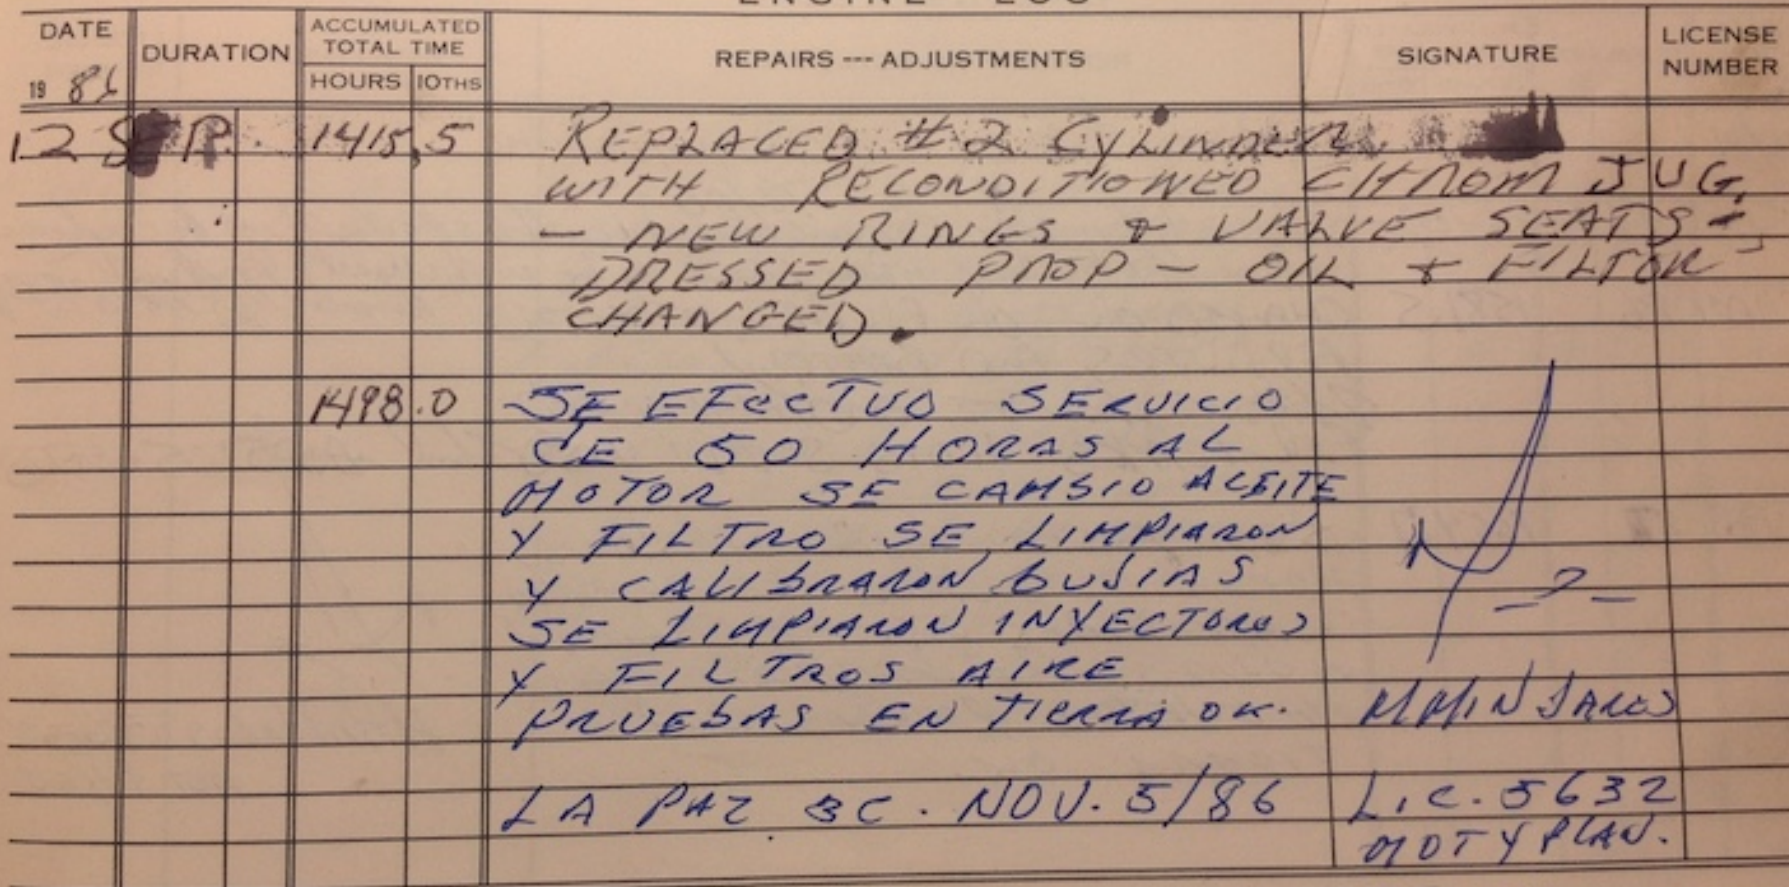 ENGINE LOG
DATE
19 86
DURATION
ACCUMULATED
TOTAL TIME
HOURS 10THS
REPAIRS --- ADJUSTMENTS
SIGNATURE
LICENSE
NUMBER
12 SEP. 1415.5 REPLACED #2 CYLINDER
WITH RECONDITIONED CHROM JUG,
- NEW RINGS & VALVE SEATS -
DRESSED PROP - OIL & FILTOR
CHANGED.
1498.0 SE EFECTUO SERVICIO
DE 50 HORAS AL
MOTOR SE CAMBIO ACEITE
Y FILTRO SE LIMPIARON
Y CALIBRARON BUJIAS
SE LIMPIARON INYECTORES
Y FILTROS AIRE
PRUEBAS EN TIERRA OK.
LA PAZ BC. NOV. 5/86 LIC. 5632
MOT Y PLAN.